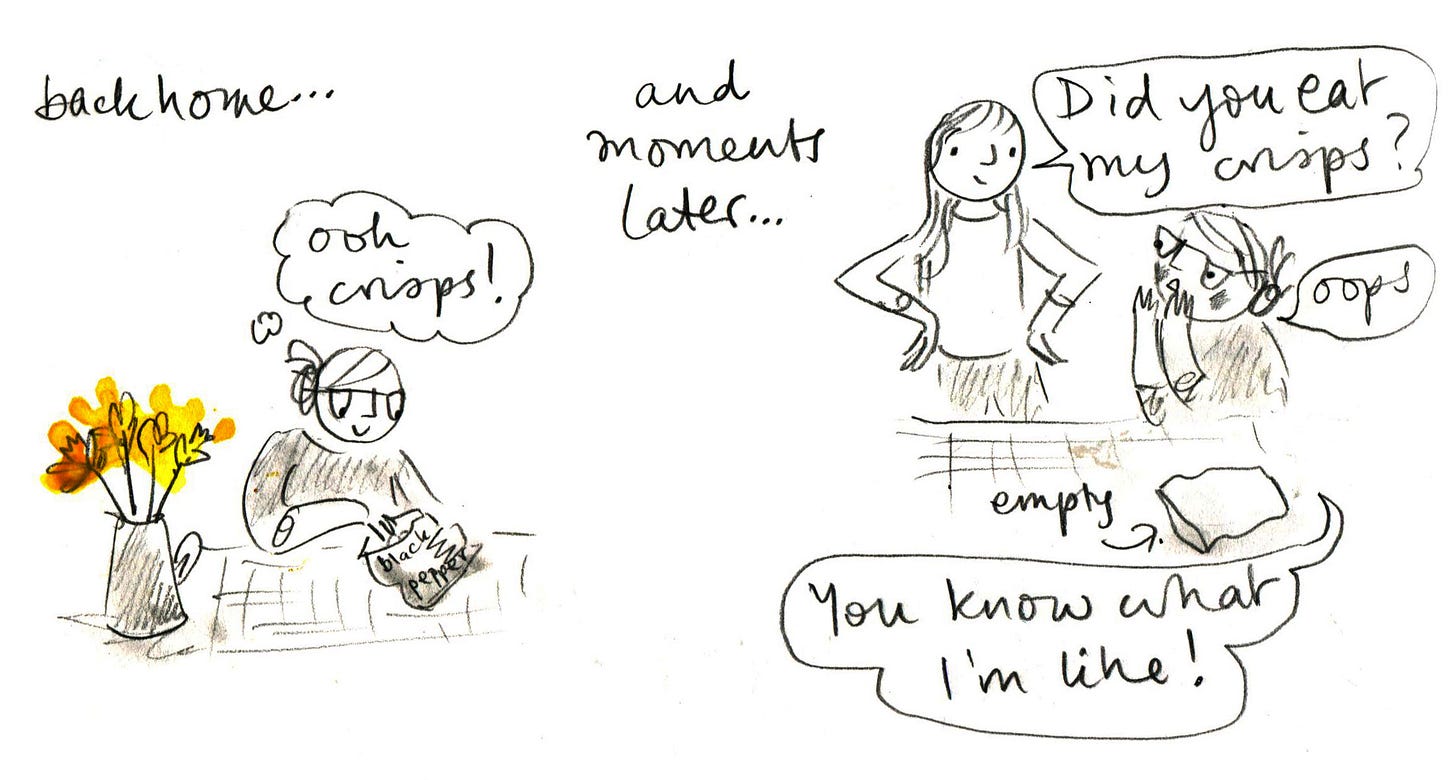 back home...
ooh
crisps!
black
pepper
and
moments
later...
Did you eat
my crisps?
oops
empty
You know what
I'm like!